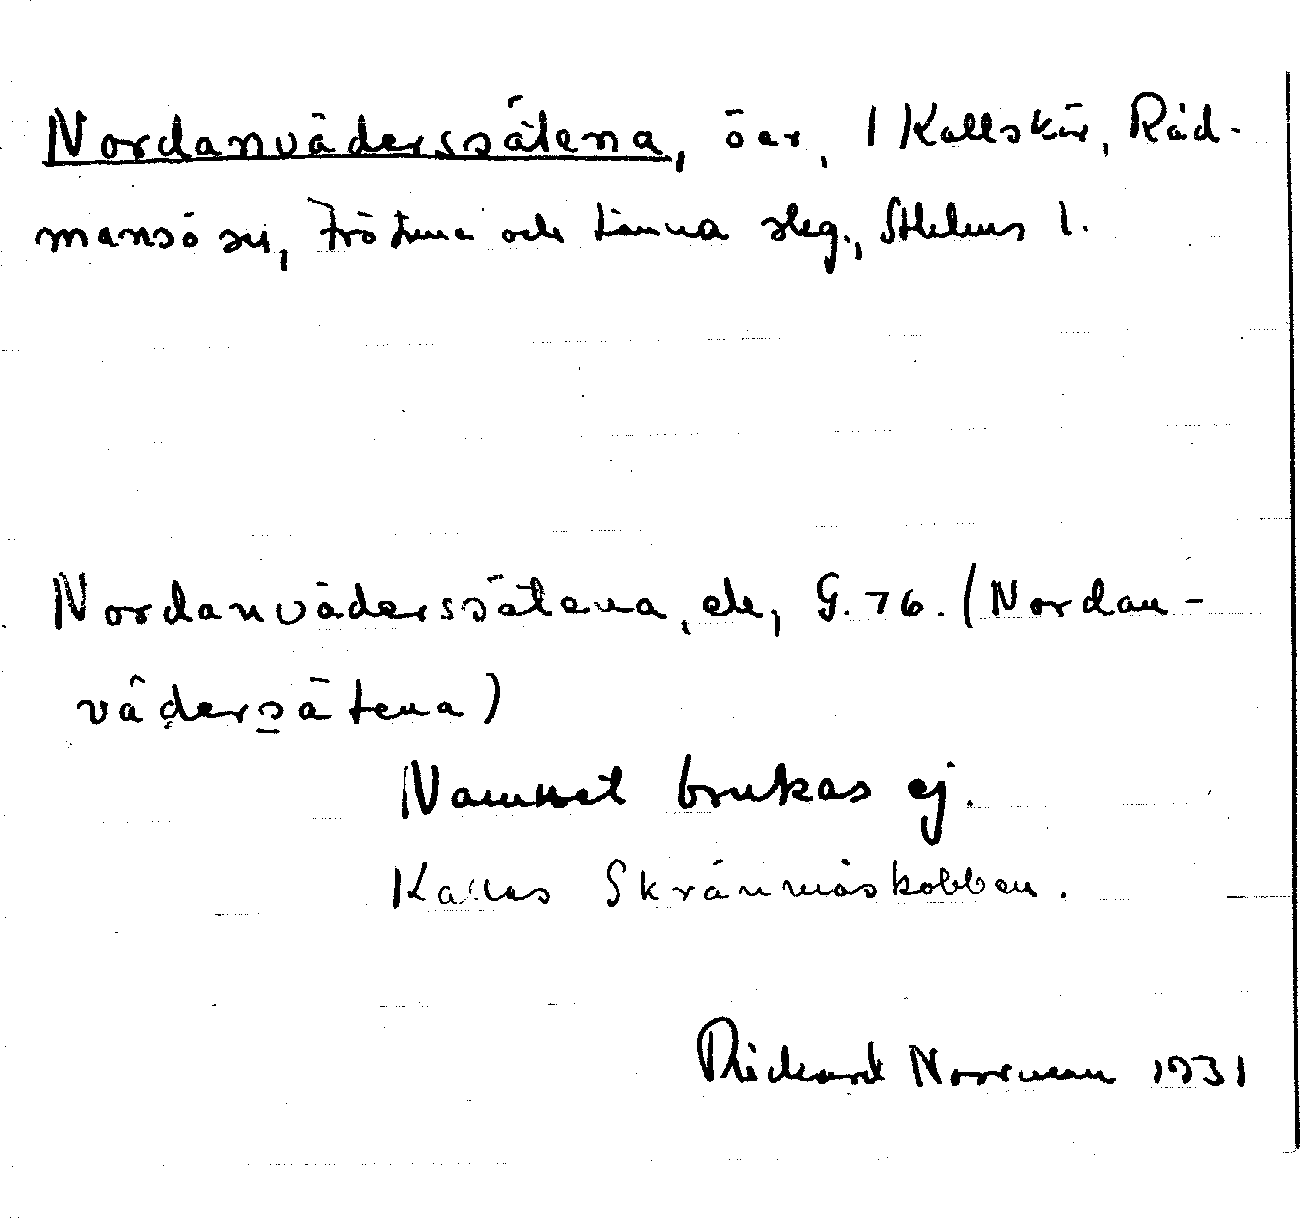 Nordanväderssätena, öar, 1 Kallskär, Råd-
mansö sn, Frötuna och Länna slg., Sthlms l.
Nordanväderssätena, ehe, G. 76. (Nordan-
vädersätena)
Namnet brukas ej.
Kallas Skränmåskobben.
Rickard Norrman 1931